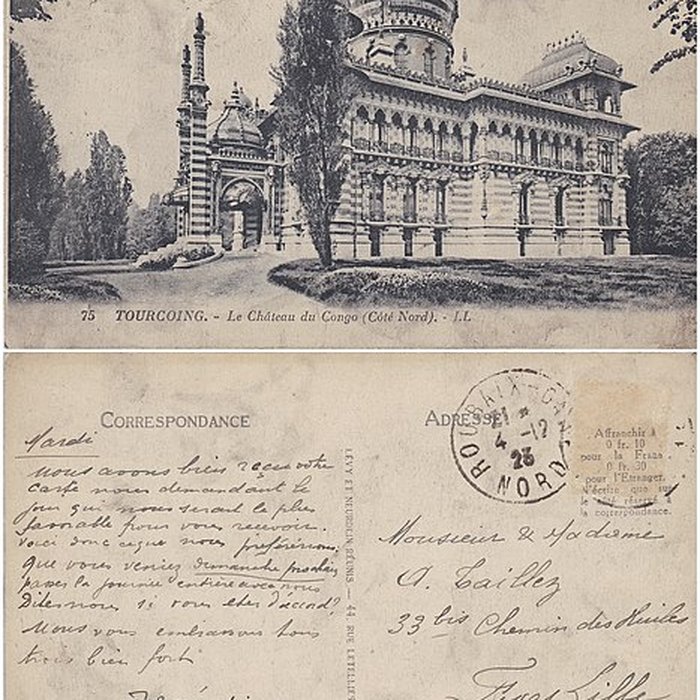 75 TOURCOING. - Le Château du Congo (Côté Nord). - LL
CORRESPONDANCE
ADRESSE
ROUBAIX-GARE
21 *
4 -12
23
NORD
Affranchir à
0 fr. 10
pour la France
0 fr. 30
pour l'Etranger.
N'écrire que sur
le côté réservé à
la correspondance.
LÉVY ET NEURDEIN RÉUNIS — 44, RUE LETELLIER
Mardi
Nous avons bien reçu votre
carte nous demandant le
jour qui nous serait le plus
favorable pour vous recevoir.
Voici donc ce que nous préférerions,
Que vous veniez dimanche prochain
passer la journée entière avec nous
Dites-nous si vous êtes d'accord?
Nous vous embrassons tous
très bien fort
Monsieur & Madame
A. Taillez
33 bis Chemin des Huiles
Fives Lille